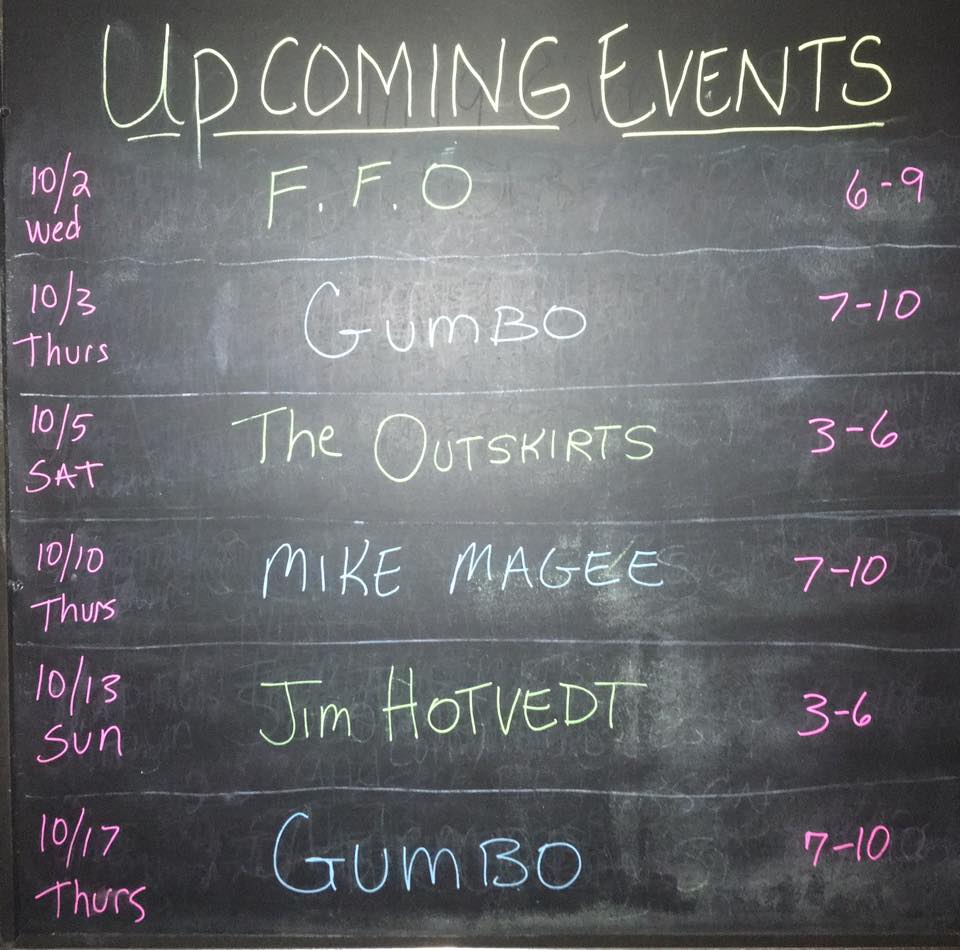 Upcoming Events
10/2 Wed F.F.O 6-9
10/3 Thurs GumBO 7-10
10/5 SAT The OUTSKIRTS 3-6
10/10 Thurs MIKE MAGEE 7-10
10/13 Sun Jim HOTVEDT 3-6
10/17 Thurs GumBO 7-10